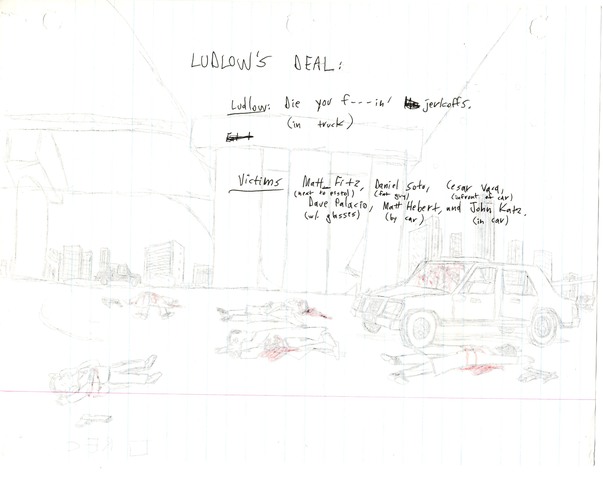 LUDLOW'S DEAL:
Ludlow: Die you f---in' jerkoffs.
(in truck)
Victims Matt Fitz, Daniel Soto, Cesar
(next to pistol) (fat guy) (infront of car)
Dave Palacio, Matt Hebert, and John Katz.
(w/ glasses) (by car) (in car)